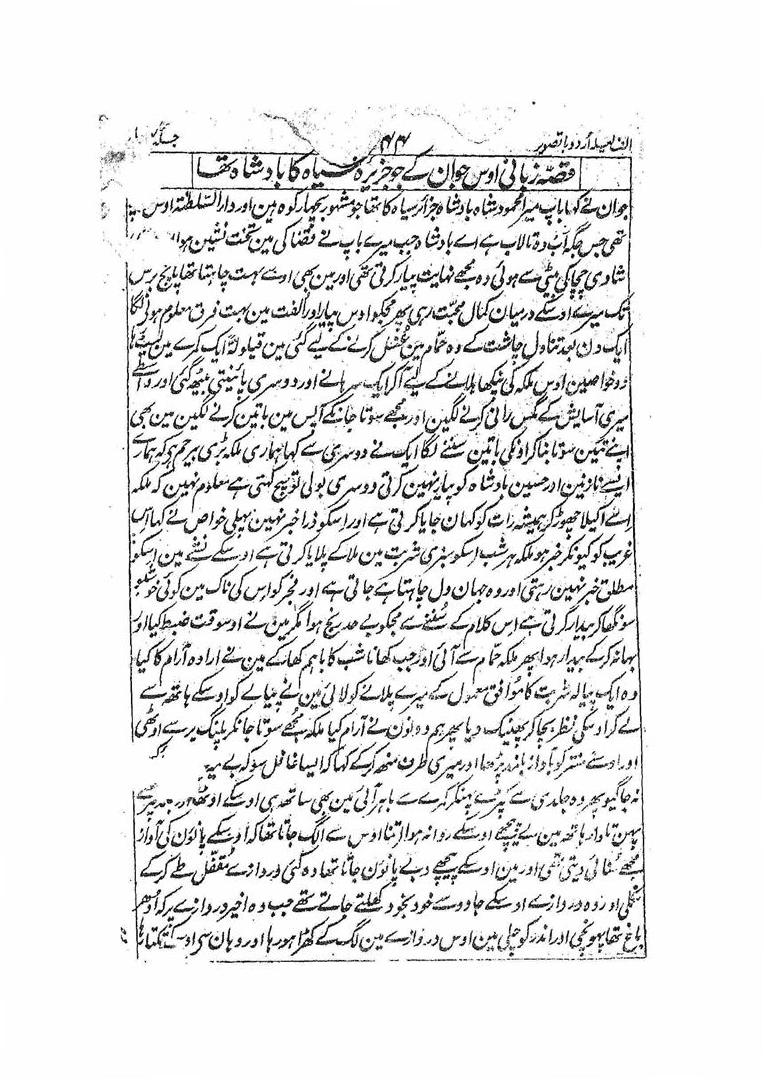 الف لیلہ اُردو باتصویر ۴۴ جلد
قصّہ زبانی اوس جوان کے جو جزیرۂ سیاہ کا بادشاہ تھا
جوان نے کہا باپ میرا محمود شاہ بادشاہ جزائر سیاہ کا تھا جو مشہور بچہار کوہ ہین اور دار السّلطنۃ اوس
تھی جس جگہ اب وہ تالاب ہے اے بادشاہ جب میرے باپ نے قضا کی مین تخت نشین ہوا
شادی چچا کی بیٹی سے ہوئی وہ مجھے نہایت پیار کرتی تھی اور مین بھی اوسے بہت چاہتا تھا پانچ برس
تک میرے اوسکے درمیان کمال محبّت رہی پھر مجکو اوس پیار اور الفت مین بہت فرق معلوم ہونے لگا
ایک دن بعد تناول چاشت کے وہ حمّام مین غسل کرنے کے لیے گئی مین قیلولہ ایک کمرے مین
دو خواصین اوس ملکہ کی پنکھا ہلانے کے لیے آکر ایک سرہانے اور دوسری پائینتی بیٹھ گئی اور واسطے
میری آسایش کے مگس رانی کرنے لگین اور مجھے سوتا جانکے آپس مین باتین کرنے لگین مین بھی
اپنے تئین سوتا بنا کر اونکی باتین سننے لگا ایک نے دوسری سے کہا ہماری ملکہ بڑی بیرحم ہے کہ ہمارے
ایسے نازنین اور حسین بادشاہ کو پیار نہین کرتی دوسری بولی تو سچ کہتی ہے معلوم نہین کہ ملکہ
اسے اکیلا چھوڑ کر ہمیشہ رات کو کہان جایا کرتی ہے اور اسکو ذرا خبر نہین پہلی خواص نے کہا اس
غریب کو کیونکر خبر ہو ملکہ ہر شب اسکو سبزی شربت مین ملا کے پلایا کرتی ہے اوسکے نشے مین اسکو
مطلق خبر نہین رہتی اور وہ جہان دل چاہتا ہے جاتی ہے اور فجر کو اس کی ناک مین کوئی خوشبو
سونگھا کر بیدار کرتی ہے اس کلام کے سُننے سے مجکو بے حد رنج ہوا مگر مین نے اوسوقت ضبط کیا اور
بہانہ کرکے بیدار ہوا پھر ملکہ حمّام سے آئی اور جب کھانا شب کا باہم کھا کے مین نے ارادہ آرام کا کیا
وہ ایک پیالہ شربت کا موافق معمول کے میرے پلانے کو لائی مین نے پیالے کو اوسکے ہاتھ سے
لے کر اوسکی نظر بچا کر پھینک دیا پھر ہم دونون نے آرام کیا ملکہ مجھے سوتا جانکر پلنگ پر سے اوٹھی
اور اوسنے منتر کو بآواز بلند پڑھا اور میری طرف منھ کرکے کہا کہ ایسا غافل سو کہ
نہ جاگیو پھر وہ جلدی سے کپڑے پہنکر کمرے سے باہر آئی مین بھی ساتھ ہی اوسکے اوٹھا
پہن تلوار ہاتھ مین لے پیچھے اوسکے روانہ ہوا اتنا اوس سے الگ جاتا تھا کہ اوسکے پانؤن کی آواز
مجھے سُنائی دیتی تھی اور مین اوسکے پیچھے دبے پانؤن جاتا تھا وہ کئی دروازے مقفّل طے کرکے
نکلی اور وہ دروازے اوسکے جادو سے خود بخود کھلتے جاتے تھے جب وہ اخیر دروازے پر کہ اُدھر
باغ تھا پہونچی اور اندر کو چلی مین اوس دروازے مین لگ کے کھڑا ہو رہا اور وہان سے اوسے تکتا رہا